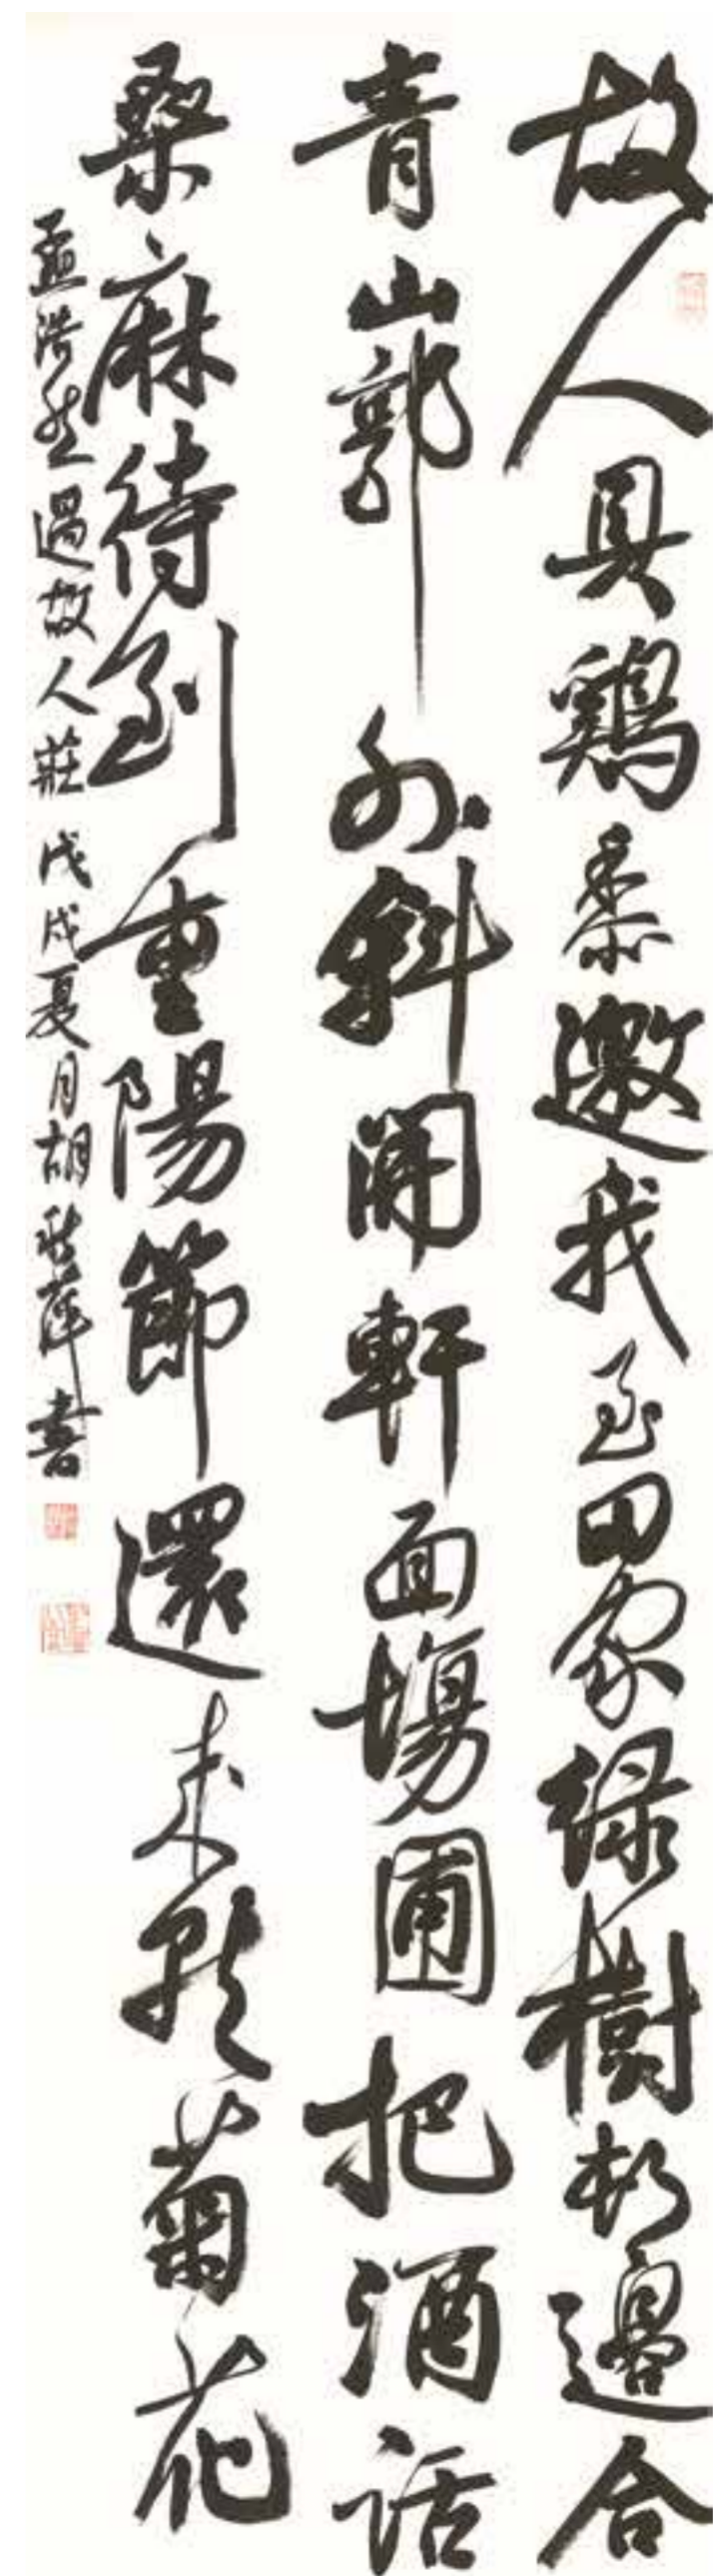 故人具鷄黍邀我至田家綠樹村邊合
青山郭外斜開軒面場圃把酒話
桑麻待到重陽節還來就菊花
孟浩然過故人莊 戊戌夏月胡秋萍書